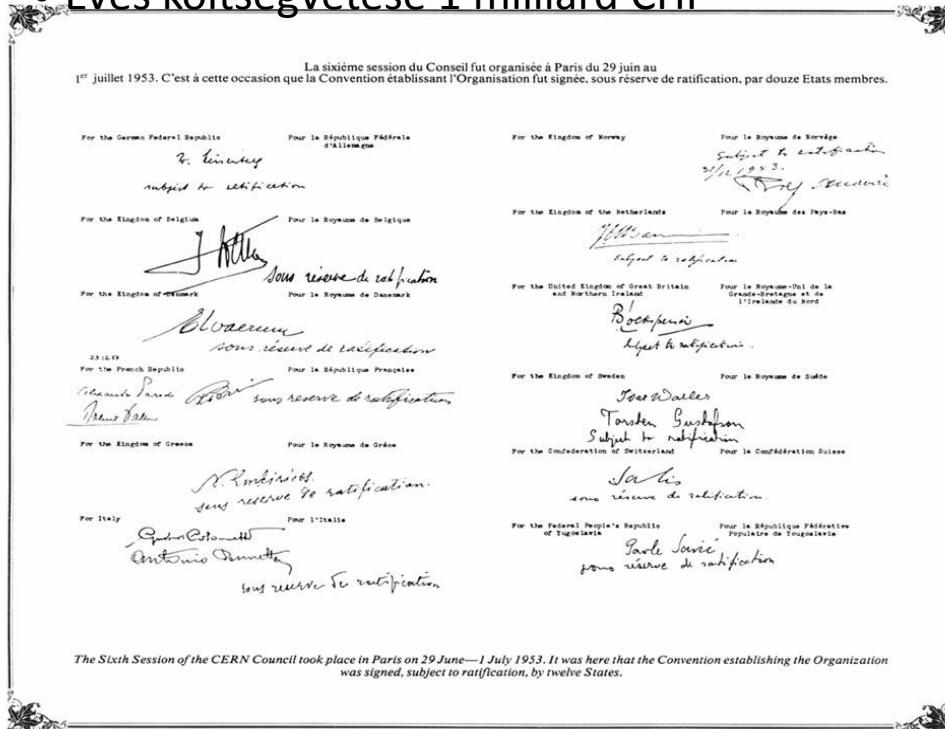 Éves költségvetése 1 milliárd CHF
La sixième session du Conseil fut organisée à Paris du 29 juin au
1er juillet 1953. C'est à cette occasion que la Convention établissant l'Organisation fut signée, sous réserve de ratification, par douze Etats membres.
For the German Federal Republic
Pour la République Fédérale
d'Allemagne
W. Heisenberg
subject to ratification
For the Kingdom of Belgium
Pour le Royaume de Belgique
sous réserve de ratification
For the Kingdom of Denmark
Pour le Royaume de Danemark
sous réserve de ratification
For the French Republic
Pour la République Française
sous reserve de ratification
For the Kingdom of Greece
Pour le Royaume de Grèce
sous reserve de ratification.
For Italy
Pour l'Italie
Antonio
sous reserve de ratification
For the Kingdom of Norway
Pour le Royaume de Norvège
Subject to ratification
31/12 1953.
For the Kingdom of the Netherlands
Pour le Royaume des Pays-Bas
Subject to ratification
For the United Kingdom of Great Britain
and Northern Ireland
Pour le Royaume-Uni de la
Grande-Bretagne et de
l'Irelande du Nord
Subject to ratification.
For the Kingdom of Sweden
Pour le Royaume de Suède
Waller
Torsten Gustafson
Subject to ratification
For the Confederation of Switzerland
Pour la Confédération Suisse
Salis
sous réserve de ratification.
For the Federal People's Republic
of Yugoslavia
Pour la République Fédérative
Populaire de Yougoslavie
Pavle Savić
sous réserve de ratification
The Sixth Session of the CERN Council took place in Paris on 29 June—1 July 1953. It was here that the Convention establishing the Organization
was signed, subject to ratification, by twelve States.